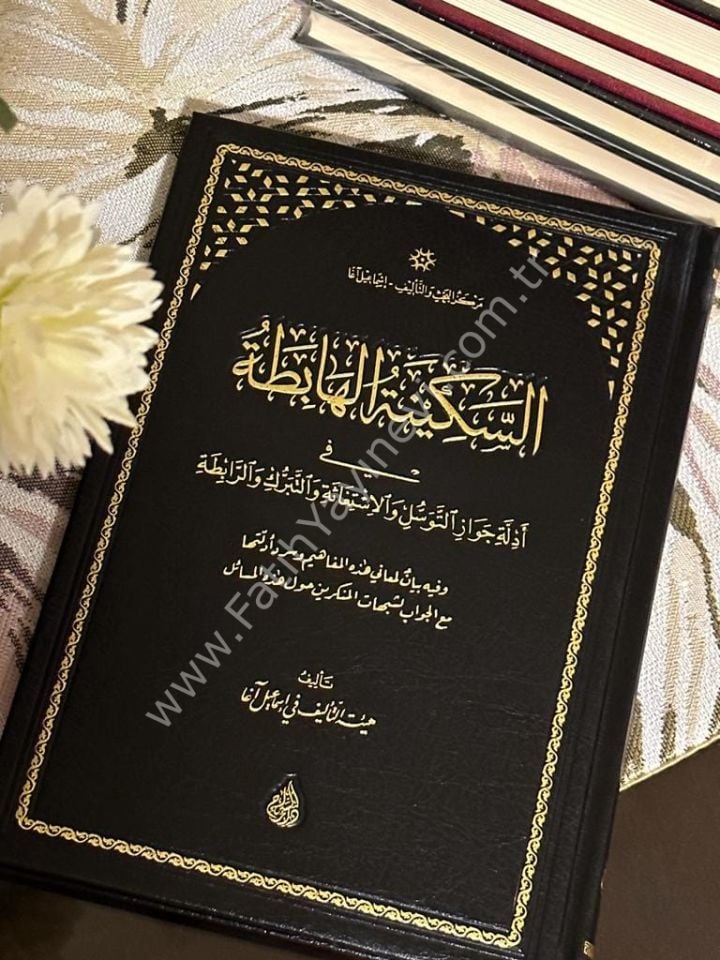 مركز البحث والتأليف - إسماعيل آغا
السَّكِيْنَةُ الهَابِطَةُ
في
أَدِلَّةِ جَوَازِ التَّوَسُّلِ وَالاِسْتِغَاثَةِ وَالتَّبَرُّكِ وَالرَّابِطَةِ
وفيه بيان لمعاني هذه المفاهيم وسرد أدلتها
مع الجواب لشبهات المنكرين حول هذه المسائل
تأليف
هيئة التأليف في إسماعيل آغا
www.FatihYayinevi.com.tr